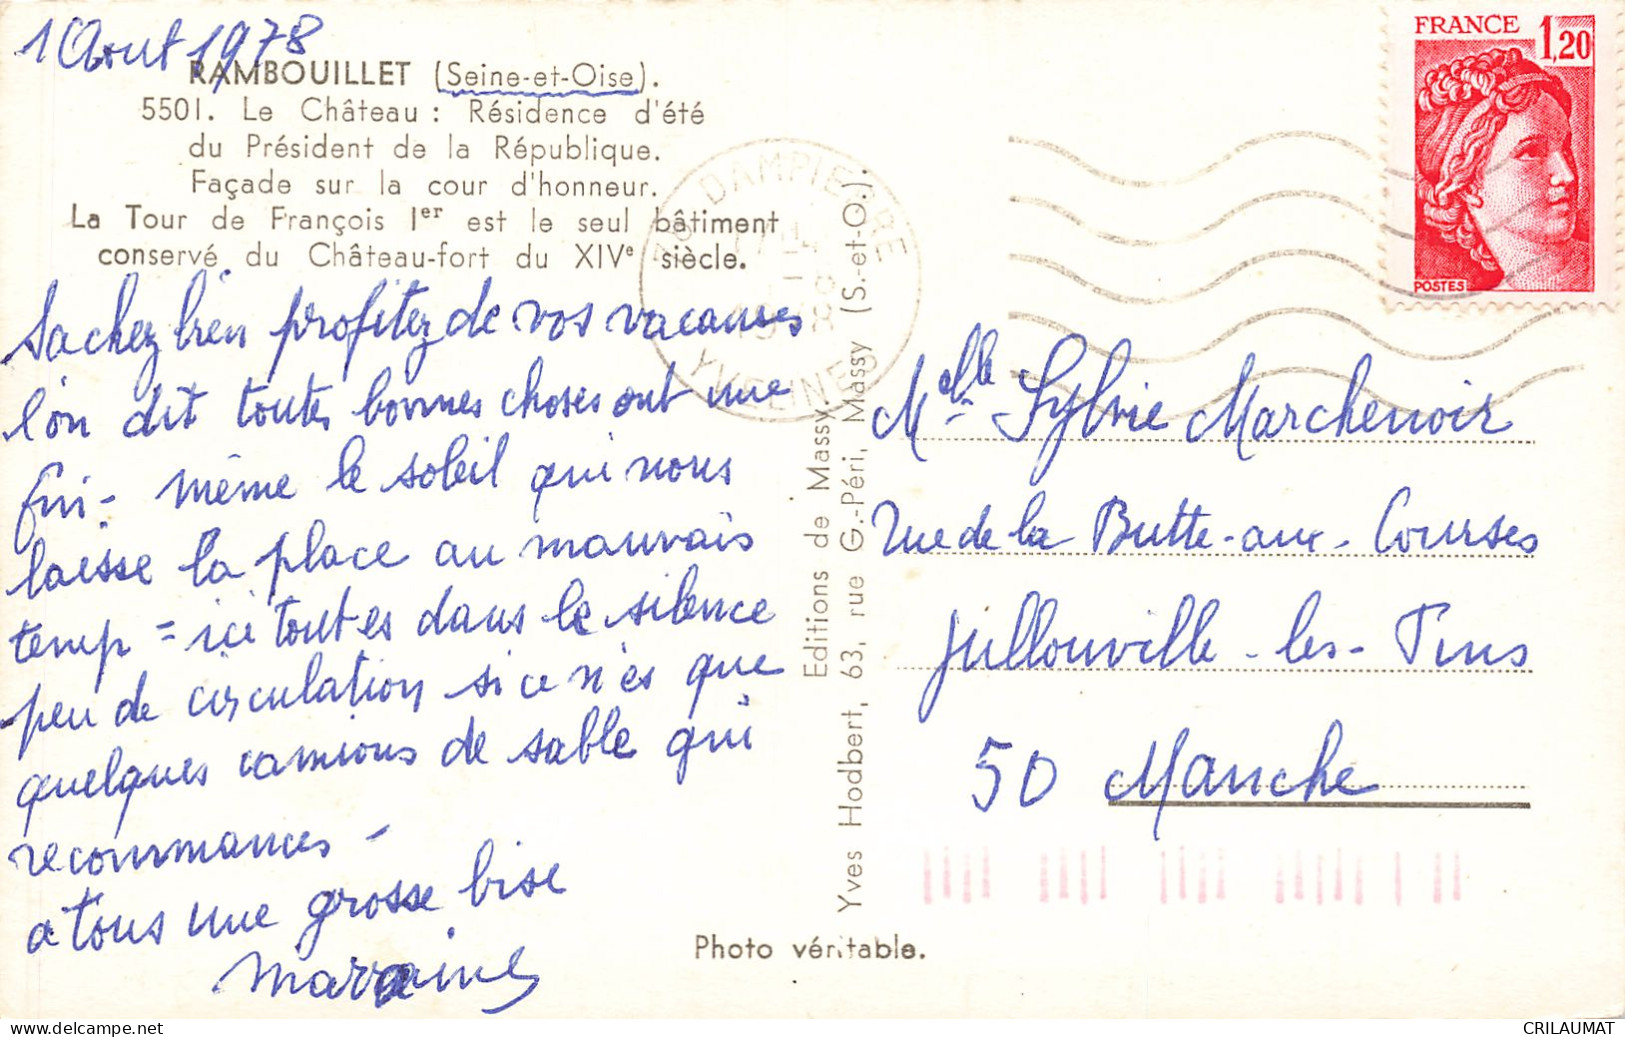 1 Aout 1978
RAMBOUILLET (Seine-et-Oise).
5501. Le Château : Résidence d'été
du Président de la République.
Façade sur la cour d'honneur.
La Tour de François Ier est le seul bâtiment
conservé du Château-fort du XIVe siècle.
Sachez bien profitez de vos vacances
l'on dit toutes bonnes choses ont une
fin - même le soleil qui nous
laisse la place au mauvais
temp = ici tout es dans le silence
peu de circulation si ce n'es que
quelques camions de sable qui
recommances -
a tous une grosse bise
Marraine
78 DAMPIERRE
YVELINES
Editions de Massy.
Yves Hodbert, 63, rue G.-Péri, Massy (S.-et-O.).
Photo véritable.
FRANCE 1,20
POSTES
Melle Sylvie Marchenoir
Rue de la Butte-aux-Courses
Jullouville-les-Pins
50 Manche
CRILAUMAT